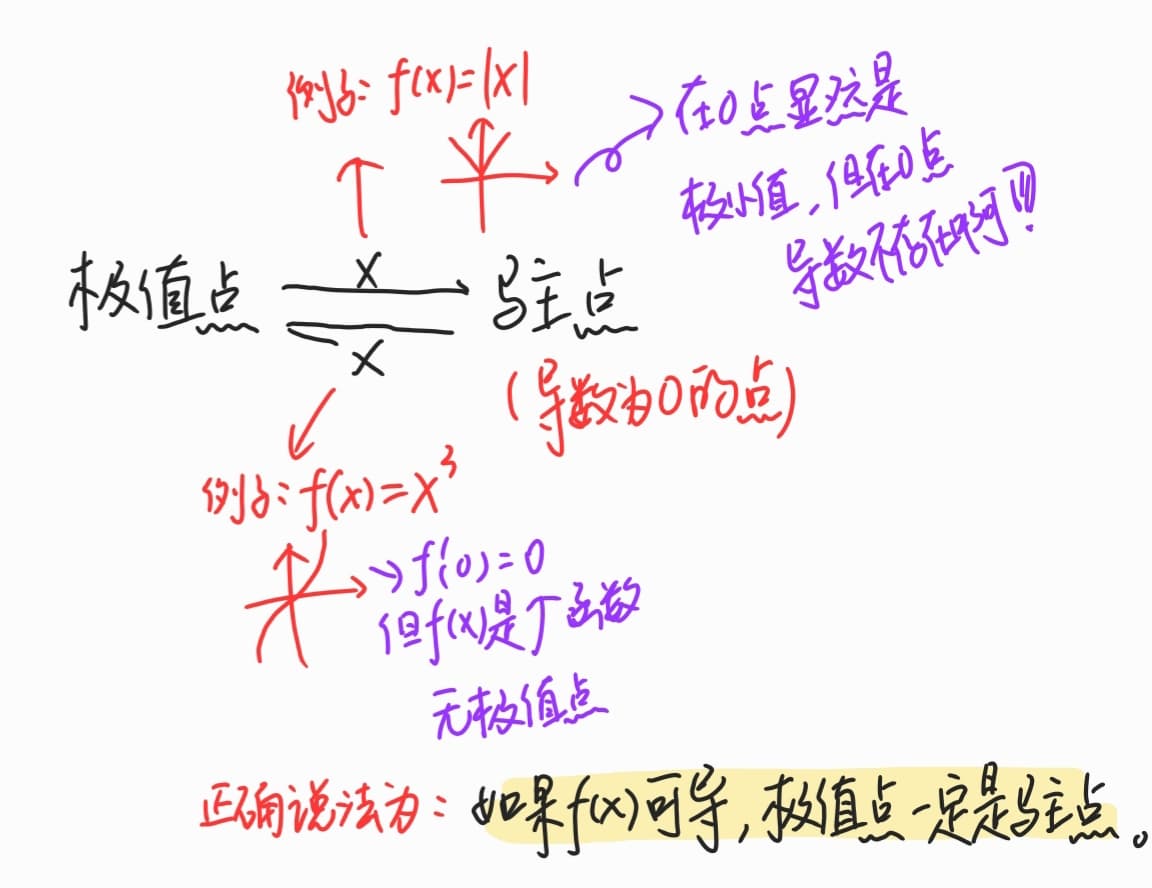 例子: f(x)=|x|
在0点显然是
极小值,但在0点
导数不存在啊!!!
极值点 驻点
x
x
(导数为0的点)
例子: f(x)=x³
→f'(0)=0
但f(x)是个函数
无极值点
正确说法为: 如果f(x)可导,极值点一定是驻点。